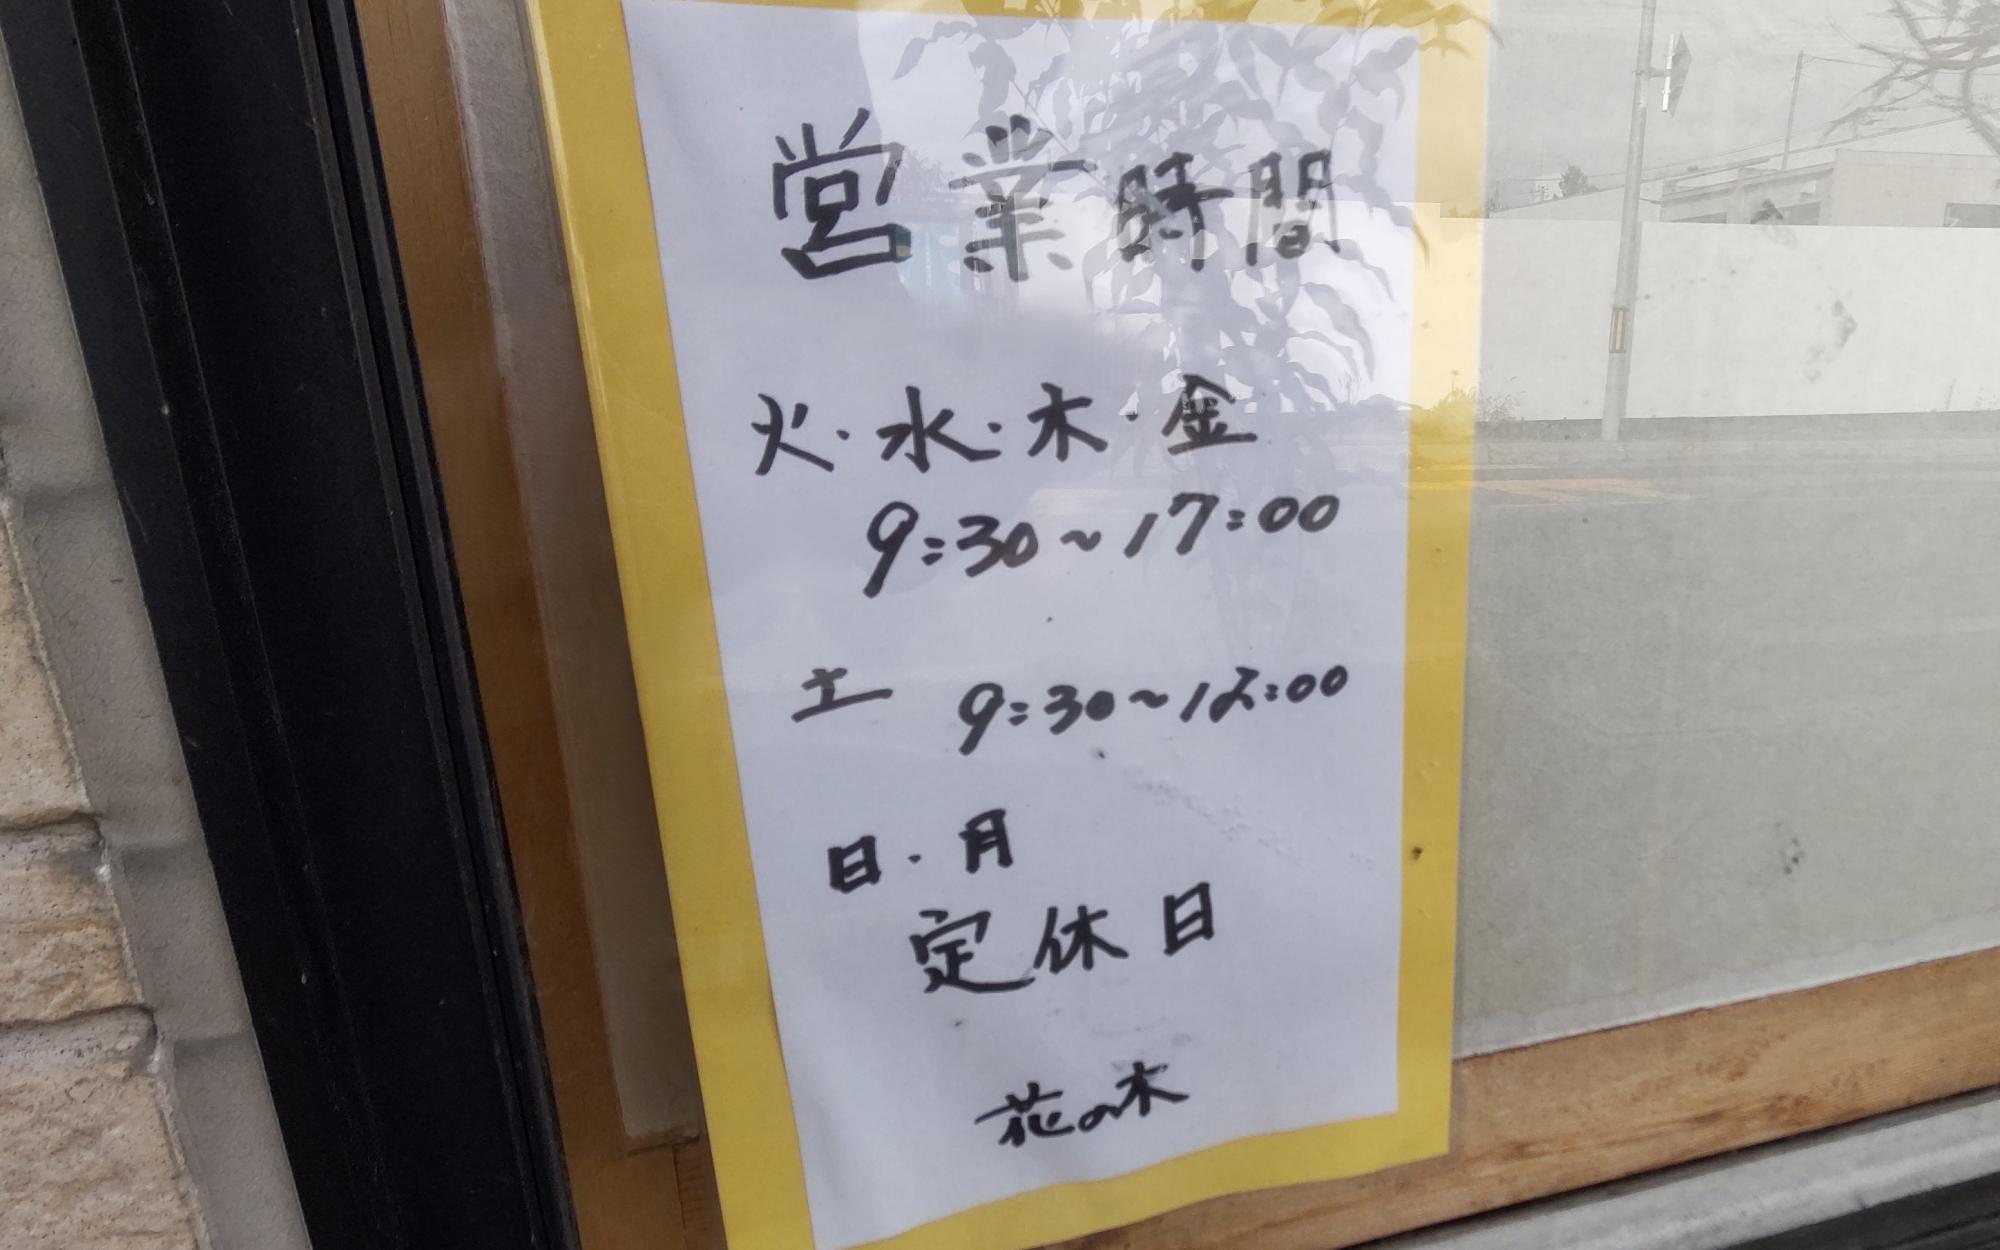 営業時間
火・水・木・金
9:30~17:00
土 9:30~12:00
日・月
定休日
花の木